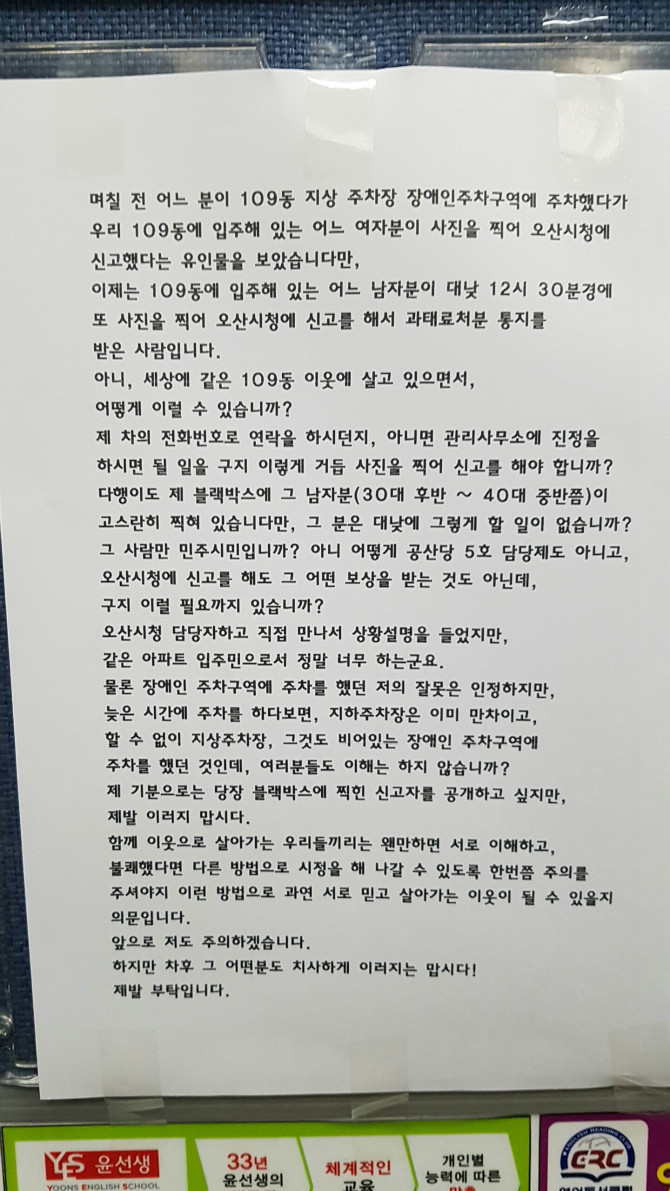 며칠 전 어느 분이 109동 지상 주차장 장애인주차구역에 주차했다가
우리 109동에 입주해 있는 어느 여자분이 사진을 찍어 오산시청에
신고했다는 유인물을 보았습니다만,
이제는 109동에 입주해 있는 어느 남자분이 대낮 12시 30분경에
또 사진을 찍어 오산시청에 신고를 해서 과태료처분 통지를
받은 사람입니다.
아니, 세상에 같은 109동 이웃에 살고 있으면서,
어떻게 이럴 수 있습니까?
제 차의 전화번호로 연락을 하시던지, 아니면 관리사무소에 진정을
하시면 될 일을 구지 이렇게 거듭 사진을 찍어 신고를 해야 합니까?
다행이도 제 블랙박스에 그 남자분(30대 후반 ~ 40대 중반쯤)이
고스란히 찍혀 있습니다만, 그 분은 대낮에 그렇게 할 일이 없습니까?
그 사람만 민주시민입니까? 아니 어떻게 공산당 5호 담당제도 아니고,
오산시청에 신고를 해도 그 어떤 보상을 받는 것도 아닌데,
구지 이럴 필요까지 있습니까?
오산시청 담당자하고 직접 만나서 상황설명을 들었지만,
같은 아파트 입주민으로서 정말 너무 하는군요.
물론 장애인 주차구역에 주차를 했던 저의 잘못은 인정하지만,
늦은 시간에 주차를 하다보면, 지하주차장은 이미 만차이고,
할 수 없이 지상주차장, 그것도 비어있는 장애인 주차구역에
주차를 했던 것인데, 여러분들도 이해는 하지 않습니까?
제 기분으로는 당장 블랙박스에 찍힌 신고자를 공개하고 싶지만,
제발 이러지 맙시다.
함께 이웃으로 살아가는 우리들끼리는 왠만하면 서로 이해하고,
불쾌했다면 다른 방법으로 시정을 해 나갈 수 있도록 한번쯤 주의를
주셔야지 이런 방법으로 과연 서로 믿고 살아가는 이웃이 될 수 있을지
의문입니다.
앞으로 저도 주의하겠습니다.
하지만 차후 그 어떤분도 치사하게 이러지는 맙시다!
제발 부탁입니다.
YES 윤선생
YOONS ENGLISH SCHOOL
33년
윤선생의
체계적인
교육
개인별
능력에 따른
ENGLISH READING CLUB
ERC